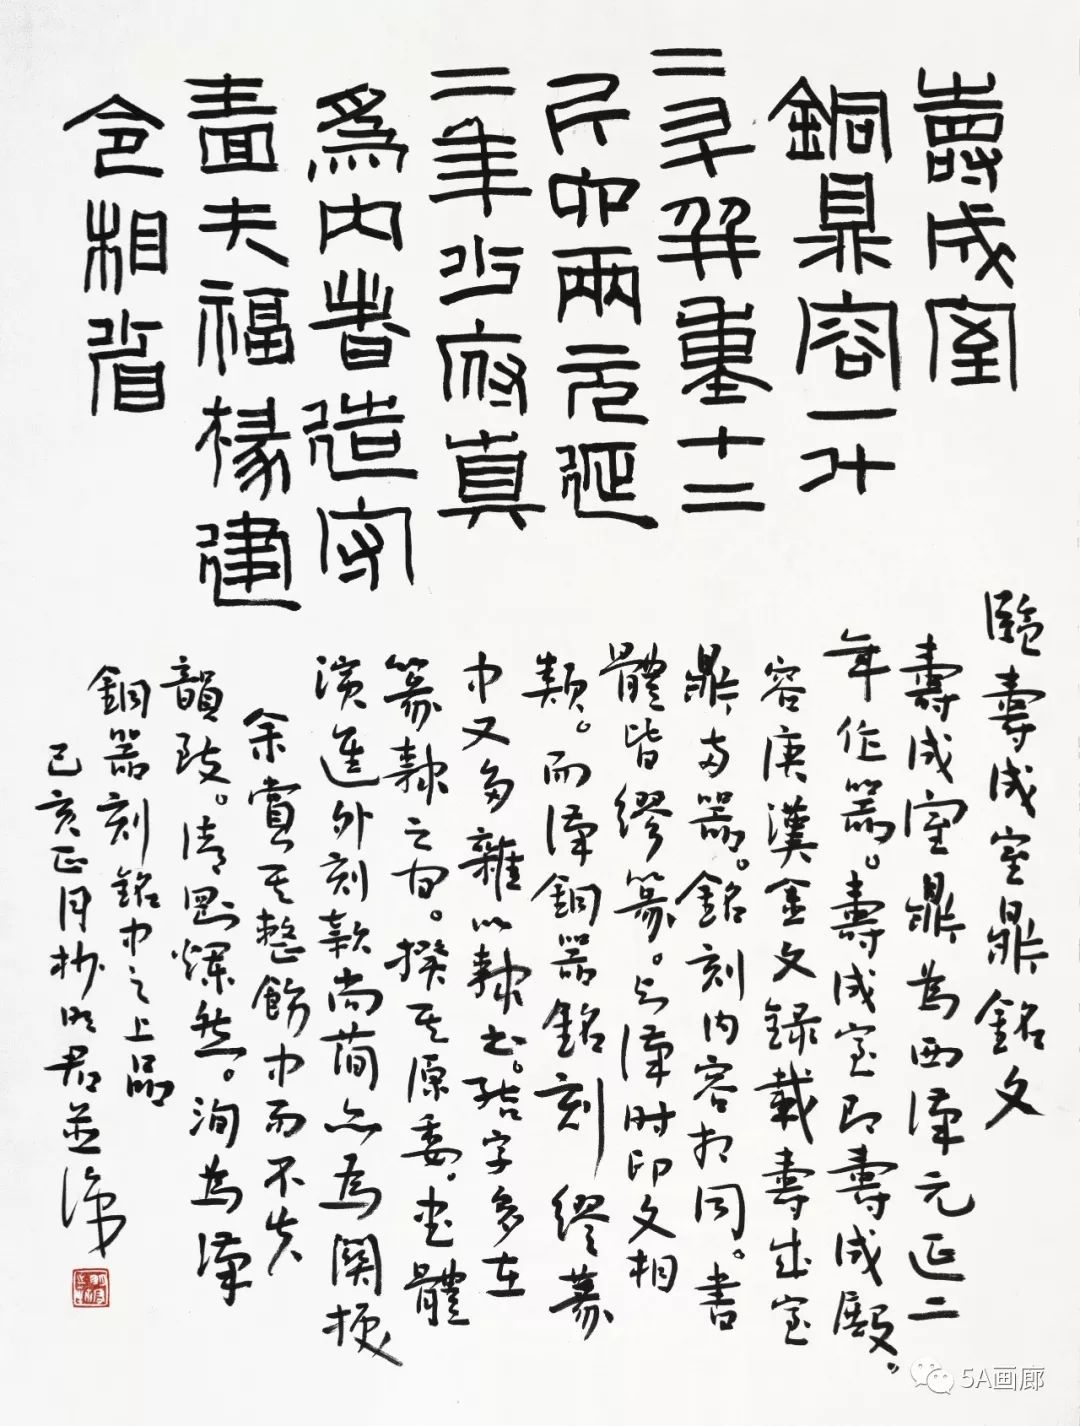 壽成室
銅鼎容一升
二斗羿重十二
斤卯兩元延
二年少府真
為內者造守
嗇夫福掾建
令相省
臨壽成室鼎銘文
壽成室鼎為西漢元延二
年作器。壽成室即壽成殿。
容庚漢金文錄載壽成室
鼎両器。銘刻內容相同。書
體皆繆篆。與漢時印文相
類。而漢銅器銘刻繆篆
中又多雜以隸書。結字多在
篆隸之間。揆其原委。書體
演進外刻款尚簡亦為關挭
余賞其整飭中而不失
韻致。清剛爍然。洵為漢
銅器刻銘中之上品
己亥正月抄明君並識
5A画廊